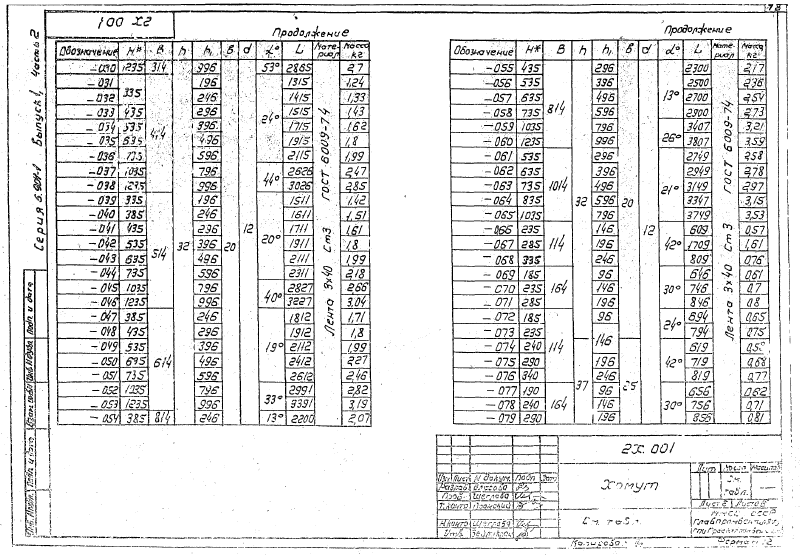 100 Х2
Продолжение
Обозначение H* B h h₁ в d α° L Мате-риал Масса кг
-030 1235 314 996 53° 2865 2,7
-031 196 1315 1,24
-032 335 246 1415 1,33
-033 435 296 1515 1,43
-034 535 396 1715 1,62
-035 635 496 1915 1,8
-036 735 596 2115 1,99
-037 1035 796 2626 2,47
-038 1235 996 44° 3026 2,85
-039 335 196 1511 1,42
-040 385 246 1611 1,51
-041 435 296 1711 1,61
-042 535 396 20° 1911 1,8
-043 635 514 32 496 20 12 2111 1,99
-044 735 596 2311 2,18
-045 1035 796 2827 2,66
-046 1235 996 40° 3227 3,04
-047 385 246 1812 1,71
-048 435 296 1912 1,8
-049 535 396 19° 2112 1,99
-050 635 614 496 2412 2,27
-051 735 596 2612 2,46
-052 1035 796 2991 2,82
-053 1235 996 33° 3391 3,19
-054 385 814 246 13° 2200 2,07
Лента 3х40 Ст3 ГОСТ 6009-74
Продолжение
Обозначение H* B h h₁ в d α° L Мате-риал Масса кг
-055 435 296 2300 2,17
-056 535 396 2500 2,36
-057 635 814 496 13° 2700 2,54
-058 735 596 2900 2,73
-059 1035 796 3407 3,21
-060 1235 996 26° 3807 3,59
-061 535 296 2749 2,58
-062 635 396 2949 2,78
-063 735 1014 496 21° 3149 2,97
-064 835 32 596 20 3347 3,15
-065 1035 796 3749 3,53
-066 235 146 12 609 0,57
-067 285 114 196 42° 1709 1,61
-068 335 246 809 0,76
-069 185 96 646 0,61
-070 235 164 146 30° 746 0,7
-071 285 196 846 0,8
-072 185 96 694 0,65
-073 235 146 24° 794 0,75
-074 240 114 619
-075 290 196 42° 719 0,68
-076 340 37 246 25 819 0,77
-077 190 96 656 0,62
-078 240 164 146 30° 756 0,71
-079 290 196 856 0,81
Лента 3х40 Ст3 ГОСТ 6009-74
Серия 5.908-1 Выпуск 1, часть 2
2Х.001
Хомут
См. табл.
Лит. Масса Масштаб
См. табл. —
Копировал
Формат 12